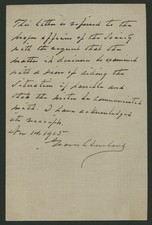 This letter is referred to the
proper officers of the Society
with the request that the
matter in                 be examined
with a view of                 the
situation if possible and
that the writer be communicated
with. I have acknowledged
its receipt.
Nov 14, 1905
Grover Cleveland